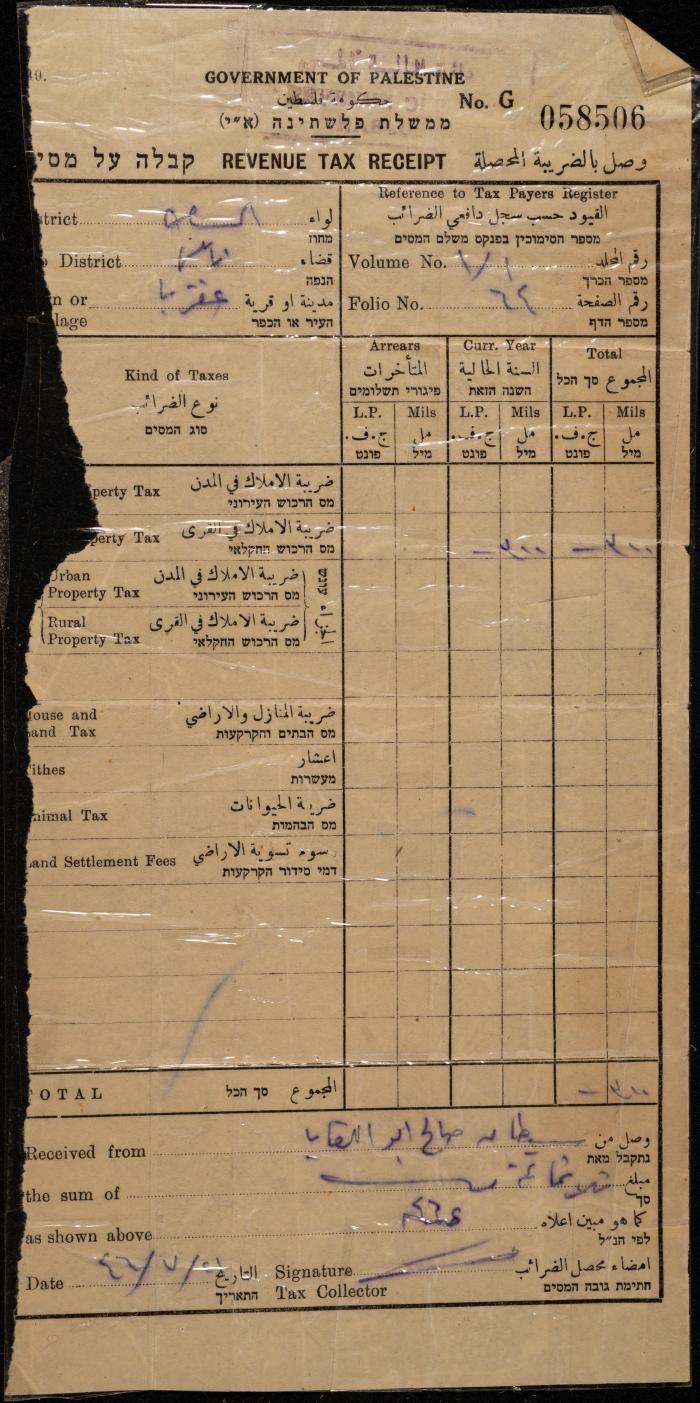 GOVERNMENT OF PALESTINE
حكومة فلسطين
No. G 058506
ממשלת פלשתינה (א״י)
קבלה על מסי REVENUE TAX RECEIPT وصل بالضريبة المحصلة
Reference to Tax Payers Register
القيود حسب سجل دافعي الضرائب
מספר הסימוכין בפנקס משלם המסים
strict لواء
מחוז
District قضاء
הנפה
n or عقربا مدينة او قرية
lage העיר או הכפר
Volume No. ١/١ رقم المجلد
מספר הכרך
Folio No. ٦٢ رقم الصفحة
מספר הדף
Kind of Taxes
نوع الضرائب
סוג המסים
Arrears
المتأخرات
פיגורי תשלומים
Curr. Year
السنة الحالية
השנה הזאת
Total
المجموع סך הכל
L.P. Mils L.P. Mils L.P. Mils
ج.ف. مل ج.ف. مل ج.ف. مل
פונט מיל פונט מיל פונט מיל
perty Tax ضريبة الاملاك في المدن
מס הרכוש העירוני
perty Tax ضريبة الاملاك في القرى
מס הרכוש החקלאי
٣٠٠ — ٣٠٠ —
Urban Property Tax ضريبة الاملاك في المدن
מס הרכוש העירוני
Rural Property Tax ضريبة الاملاك في القرى
מס הרכוש החקלאי
ouse and ضريبة المنازل والاراضي
and Tax מס הבתים והקרקעות
ithes اعشار
מעשרות
nimal Tax ضريبة الحيوانات
מס הבהמות
and Settlement Fees رسوم تسوية الاراضي
דמי סידור הקרקעות
OTAL סך הכל المجموع ٣٠٠ —
Received from صالح ابو وصل من
נתקבל מאת
the sum of مبلغ
סך
as shown above كما هو مبين اعلاه
לפי הנ״ל
Date التاريخ Signature امضاء محصل الضرائب
התאריך Tax Collector חתימת גובה המסים